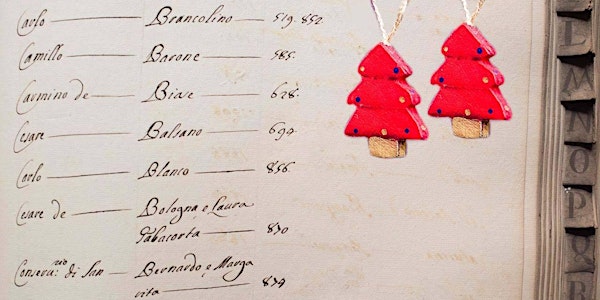 Carlo Brancolino 519. 852
Camillo Barone 585.
Carmino de Biase 628.
Cesare Balsano 694
Carlo Blanco 856.
Cesare de Bologna e Laura
Tabacorta 830
Conserva:rio di San Bernardo e Marga
rita 874
L
M
N
O
P
Q
R